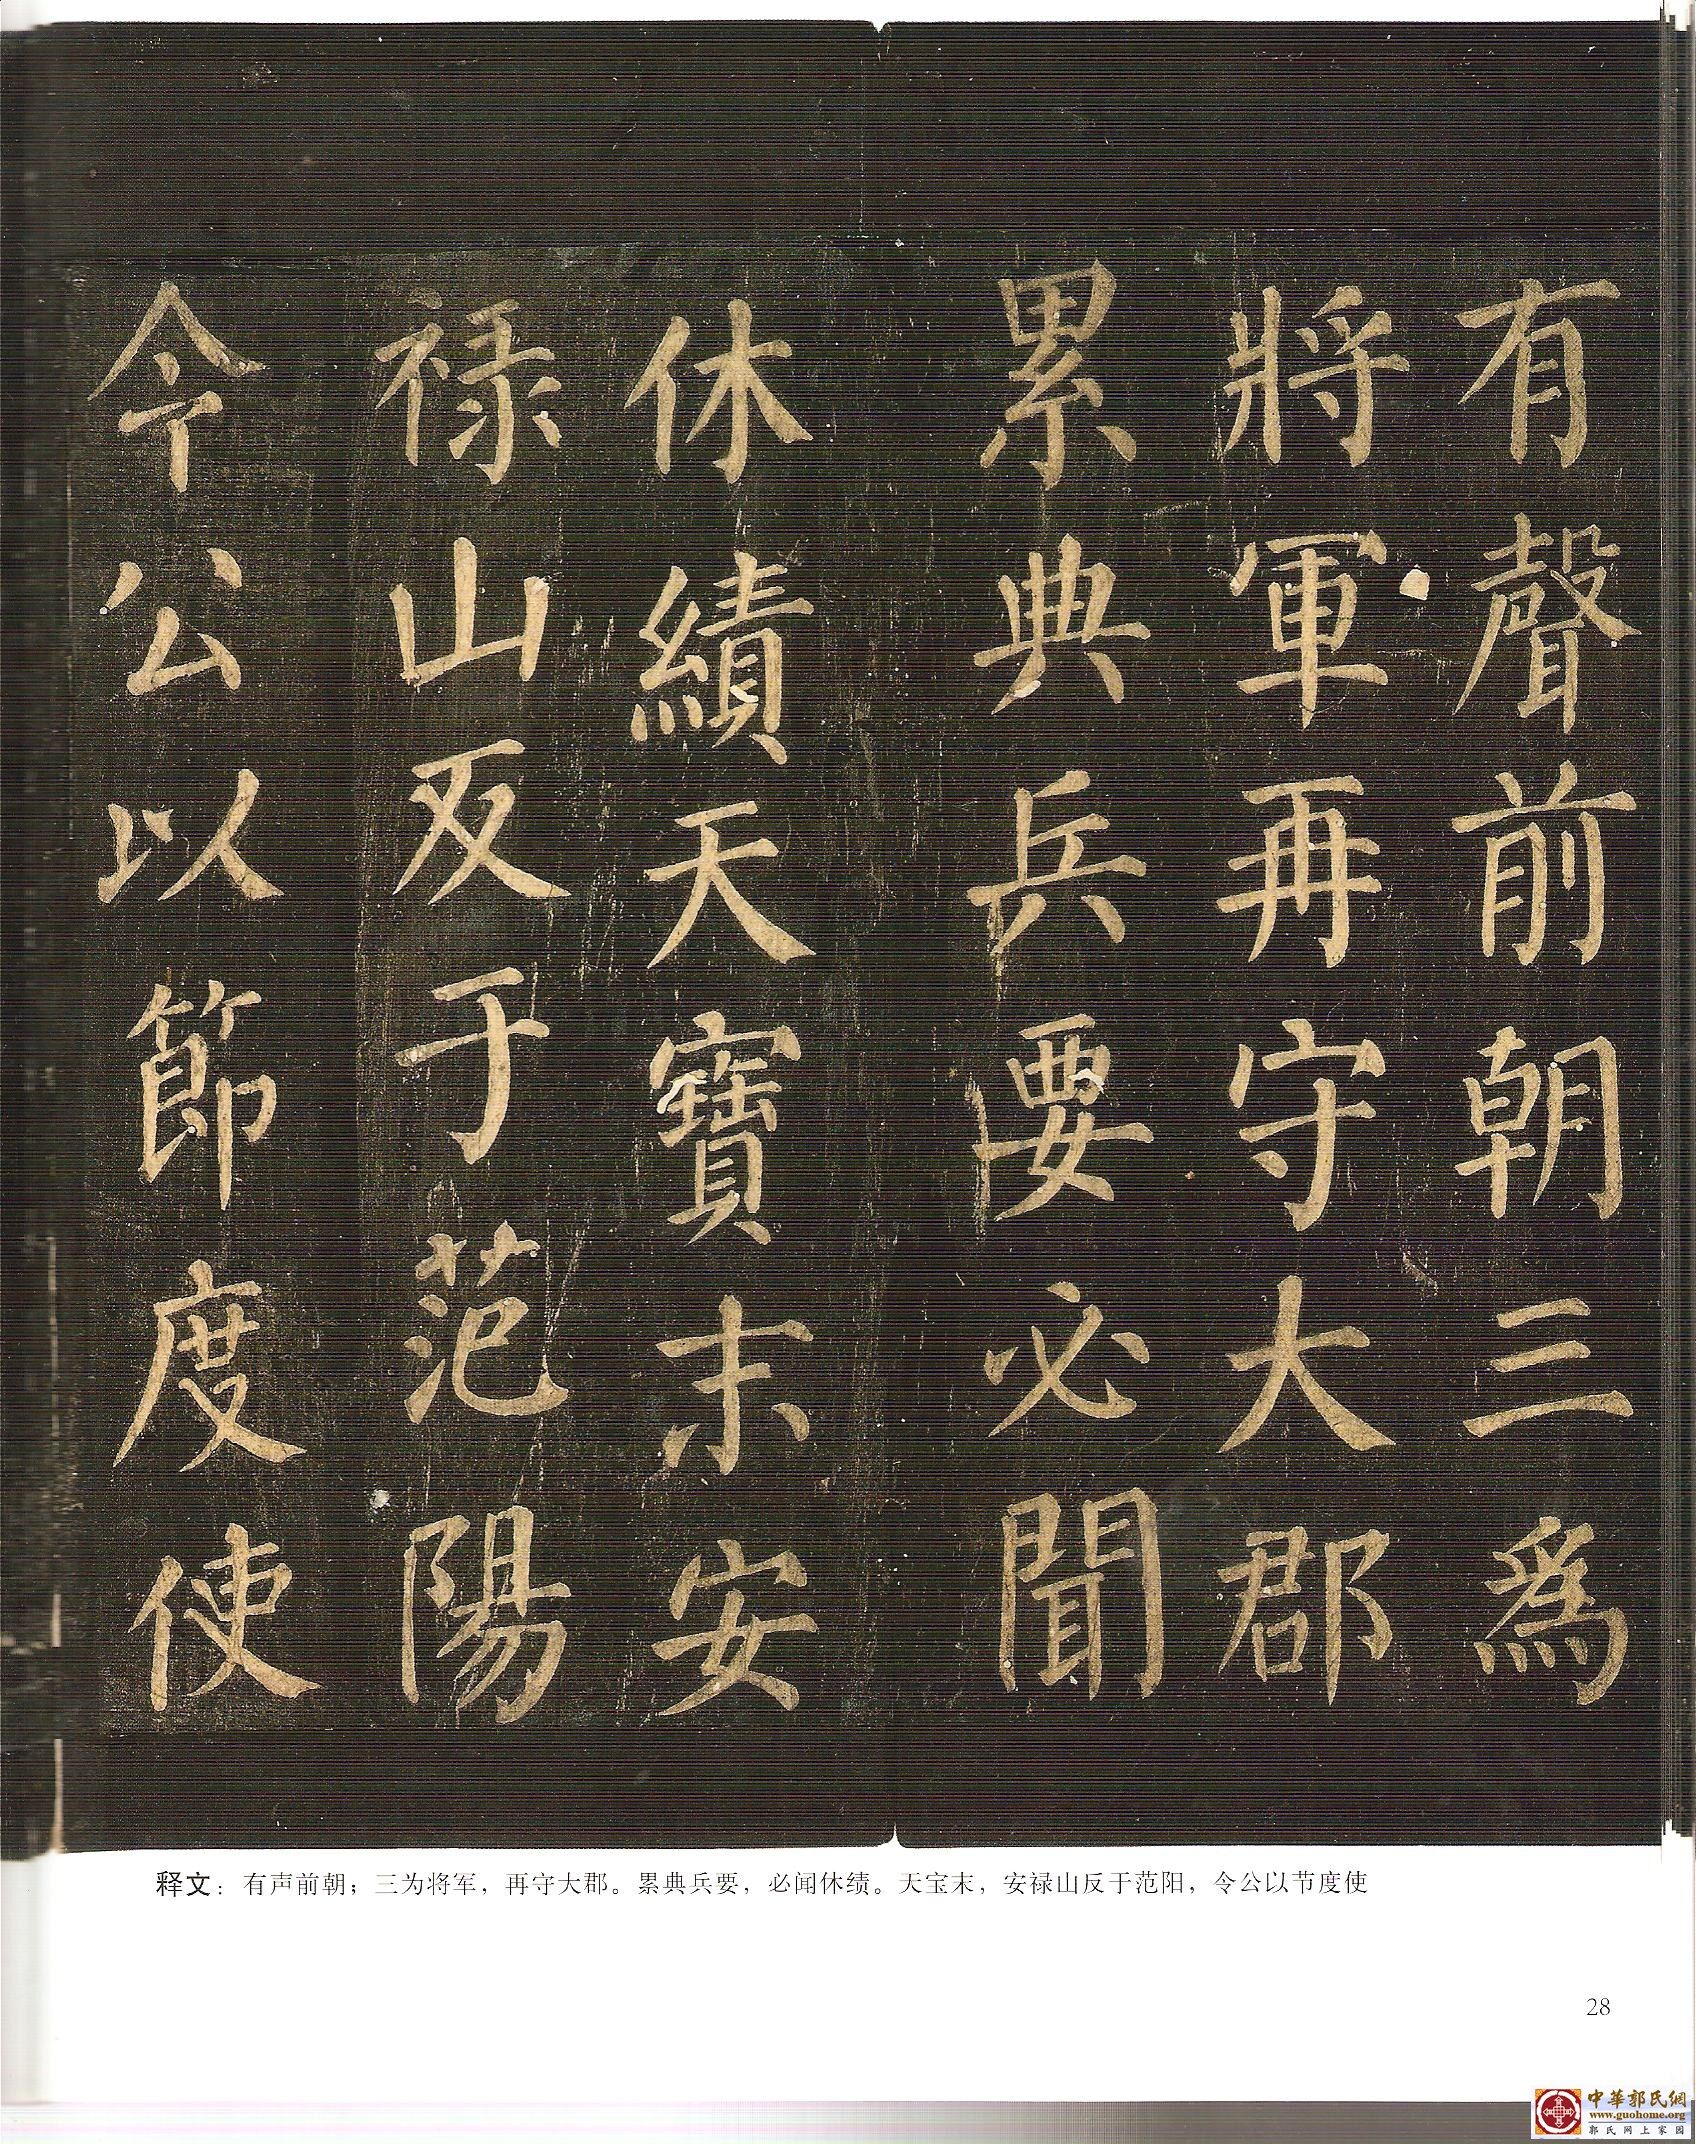 有聲前朝三爲
將軍再守大郡
累典兵要必聞
休績天寶末安
禄山反于范陽
令公以節度使
释文：有声前朝；三为将军，再守大郡。累典兵要，必闻休绩。天宝末，安禄山反于范阳，令公以节度使
28
中華郭氏網
www.guohome.org
郭氏网上家园